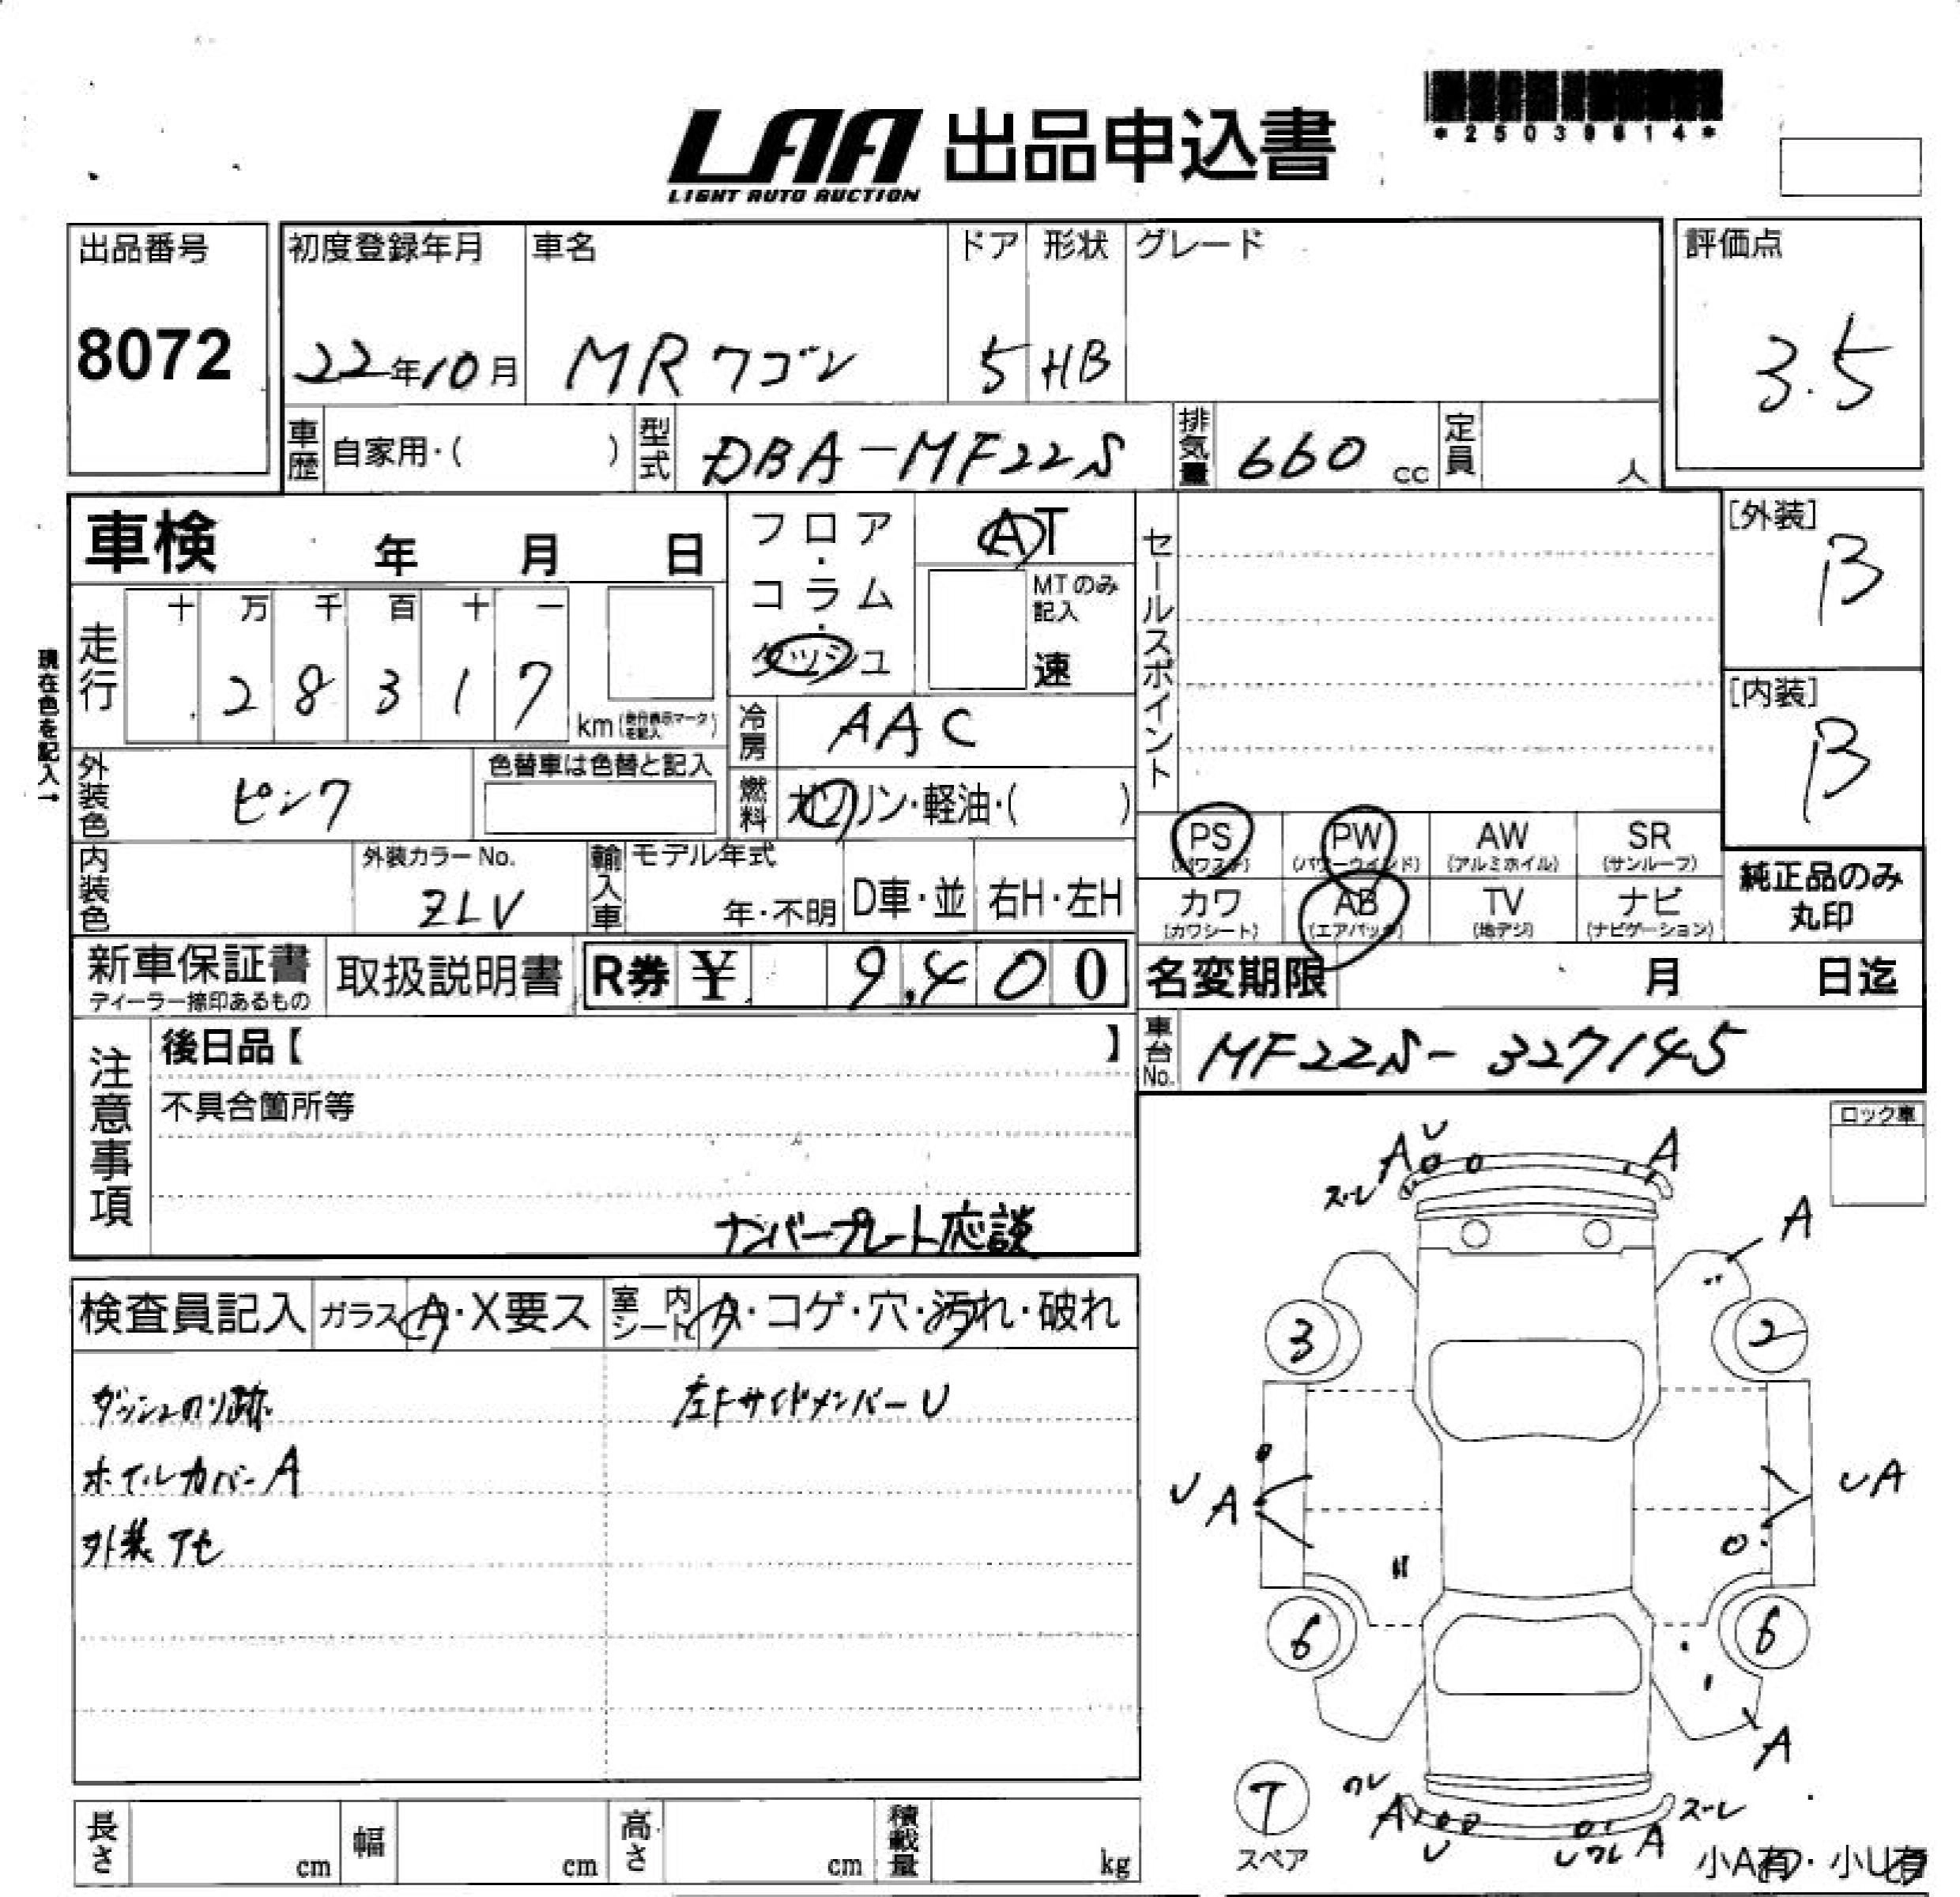 LAA 出品申込書
LIGHT AUTO AUCTION
*25039814*
出品番号
8072
初度登録年月
22年10月
車名
MRワゴン
ドア
5
形状
HB
グレード
評価点
3.5
車歴 自家用・( )
型式 DBA-MF22S
排気量 660 cc
定員 人
車検 年 月 日
フロア・コラム・ダッシュ
AT
MTのみ記入
速
セールスポイント
[外装]
B
[内装]
B
現在色を記入→
走行
十 万 千 百 十 一
2 8 3 1 7 km
冷房 AAC
外装色 ピンク
色替車は色替と記入
燃料 ガソリン・軽油・( )
PS PW AW SR
(パワステ) (パワーウインド) (アルミホイル) (サンルーフ)
カワ AB TV ナビ
(カワシート) (エアバック) (地デジ) (ナビゲーション)
純正品のみ
丸印
内装色
外装カラーNo.
ZLV
輸入車 モデル年式
年・不明 D車・並 右H・左H
新車保証書
ディーラー捺印あるもの
取扱説明書
R券 ¥ 9,400
名変期限 月 日迄
車台No. MF22S-327145
注意事項
後日品【 】
不具合箇所等
ナンバープレート応談
ロック車
検査員記入 ガラス A・X要ス 室内シート A・コゲ・穴・汚れ・破れ
ダッシュのり跡
左FサイドメンバーU
ホイルカバーA
外装アセ
U
A
A
ズレ
A
3
2
U A
UA
6
6
A
T
スペア
ワレ
A
U
Uワレ
A
ズレ
小A有・小U有
長さ cm 幅 cm 高さ cm 積載量 kg